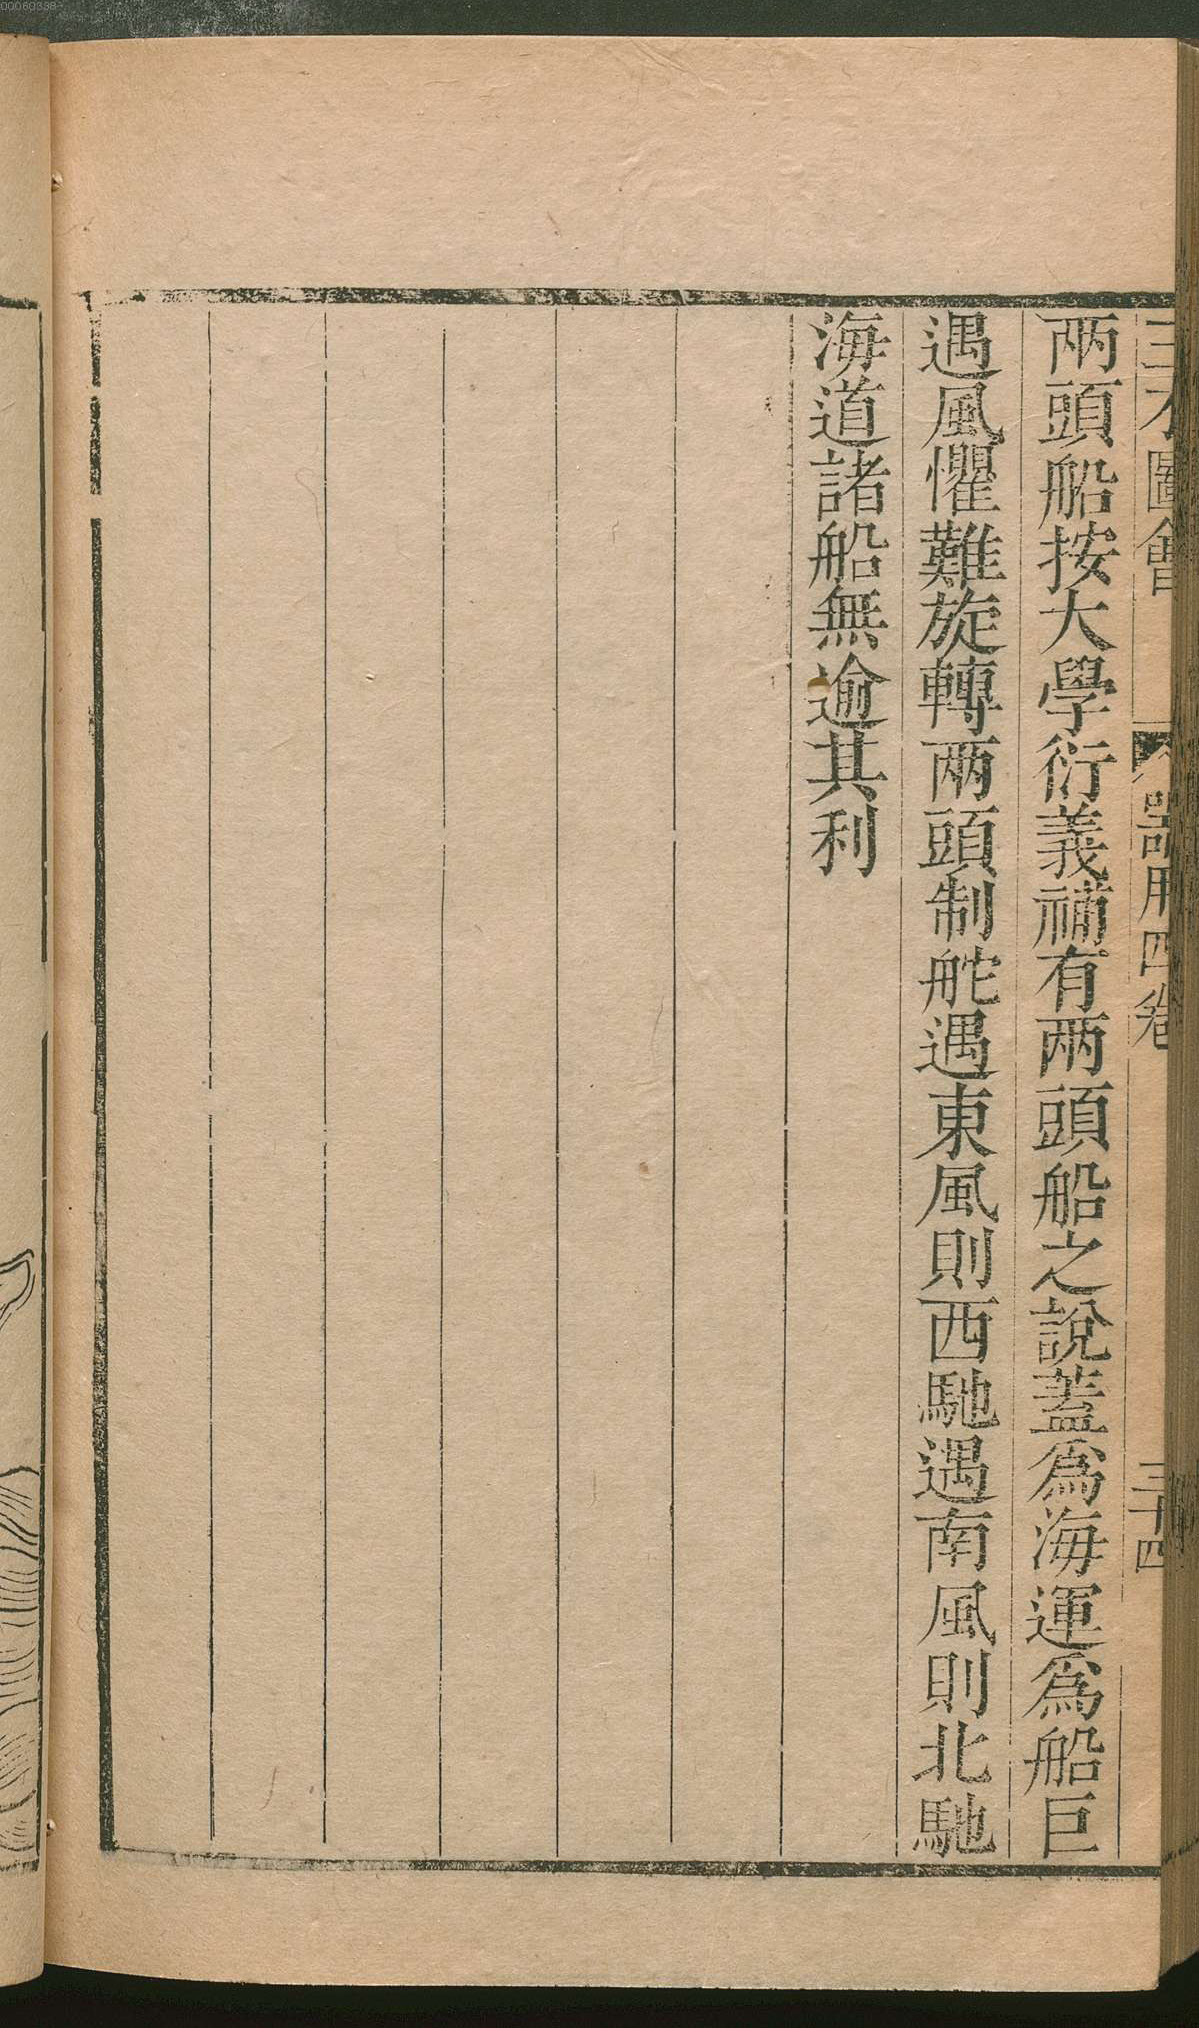 00060338
三才圖會 器用四卷 三十四
两頭船按大學衍義補有两頭船之說蓋爲海運爲船巨
遇風懼難旋轉两頭制舵遇東風則西馳遇南風則北馳
海道諸船無逾其利